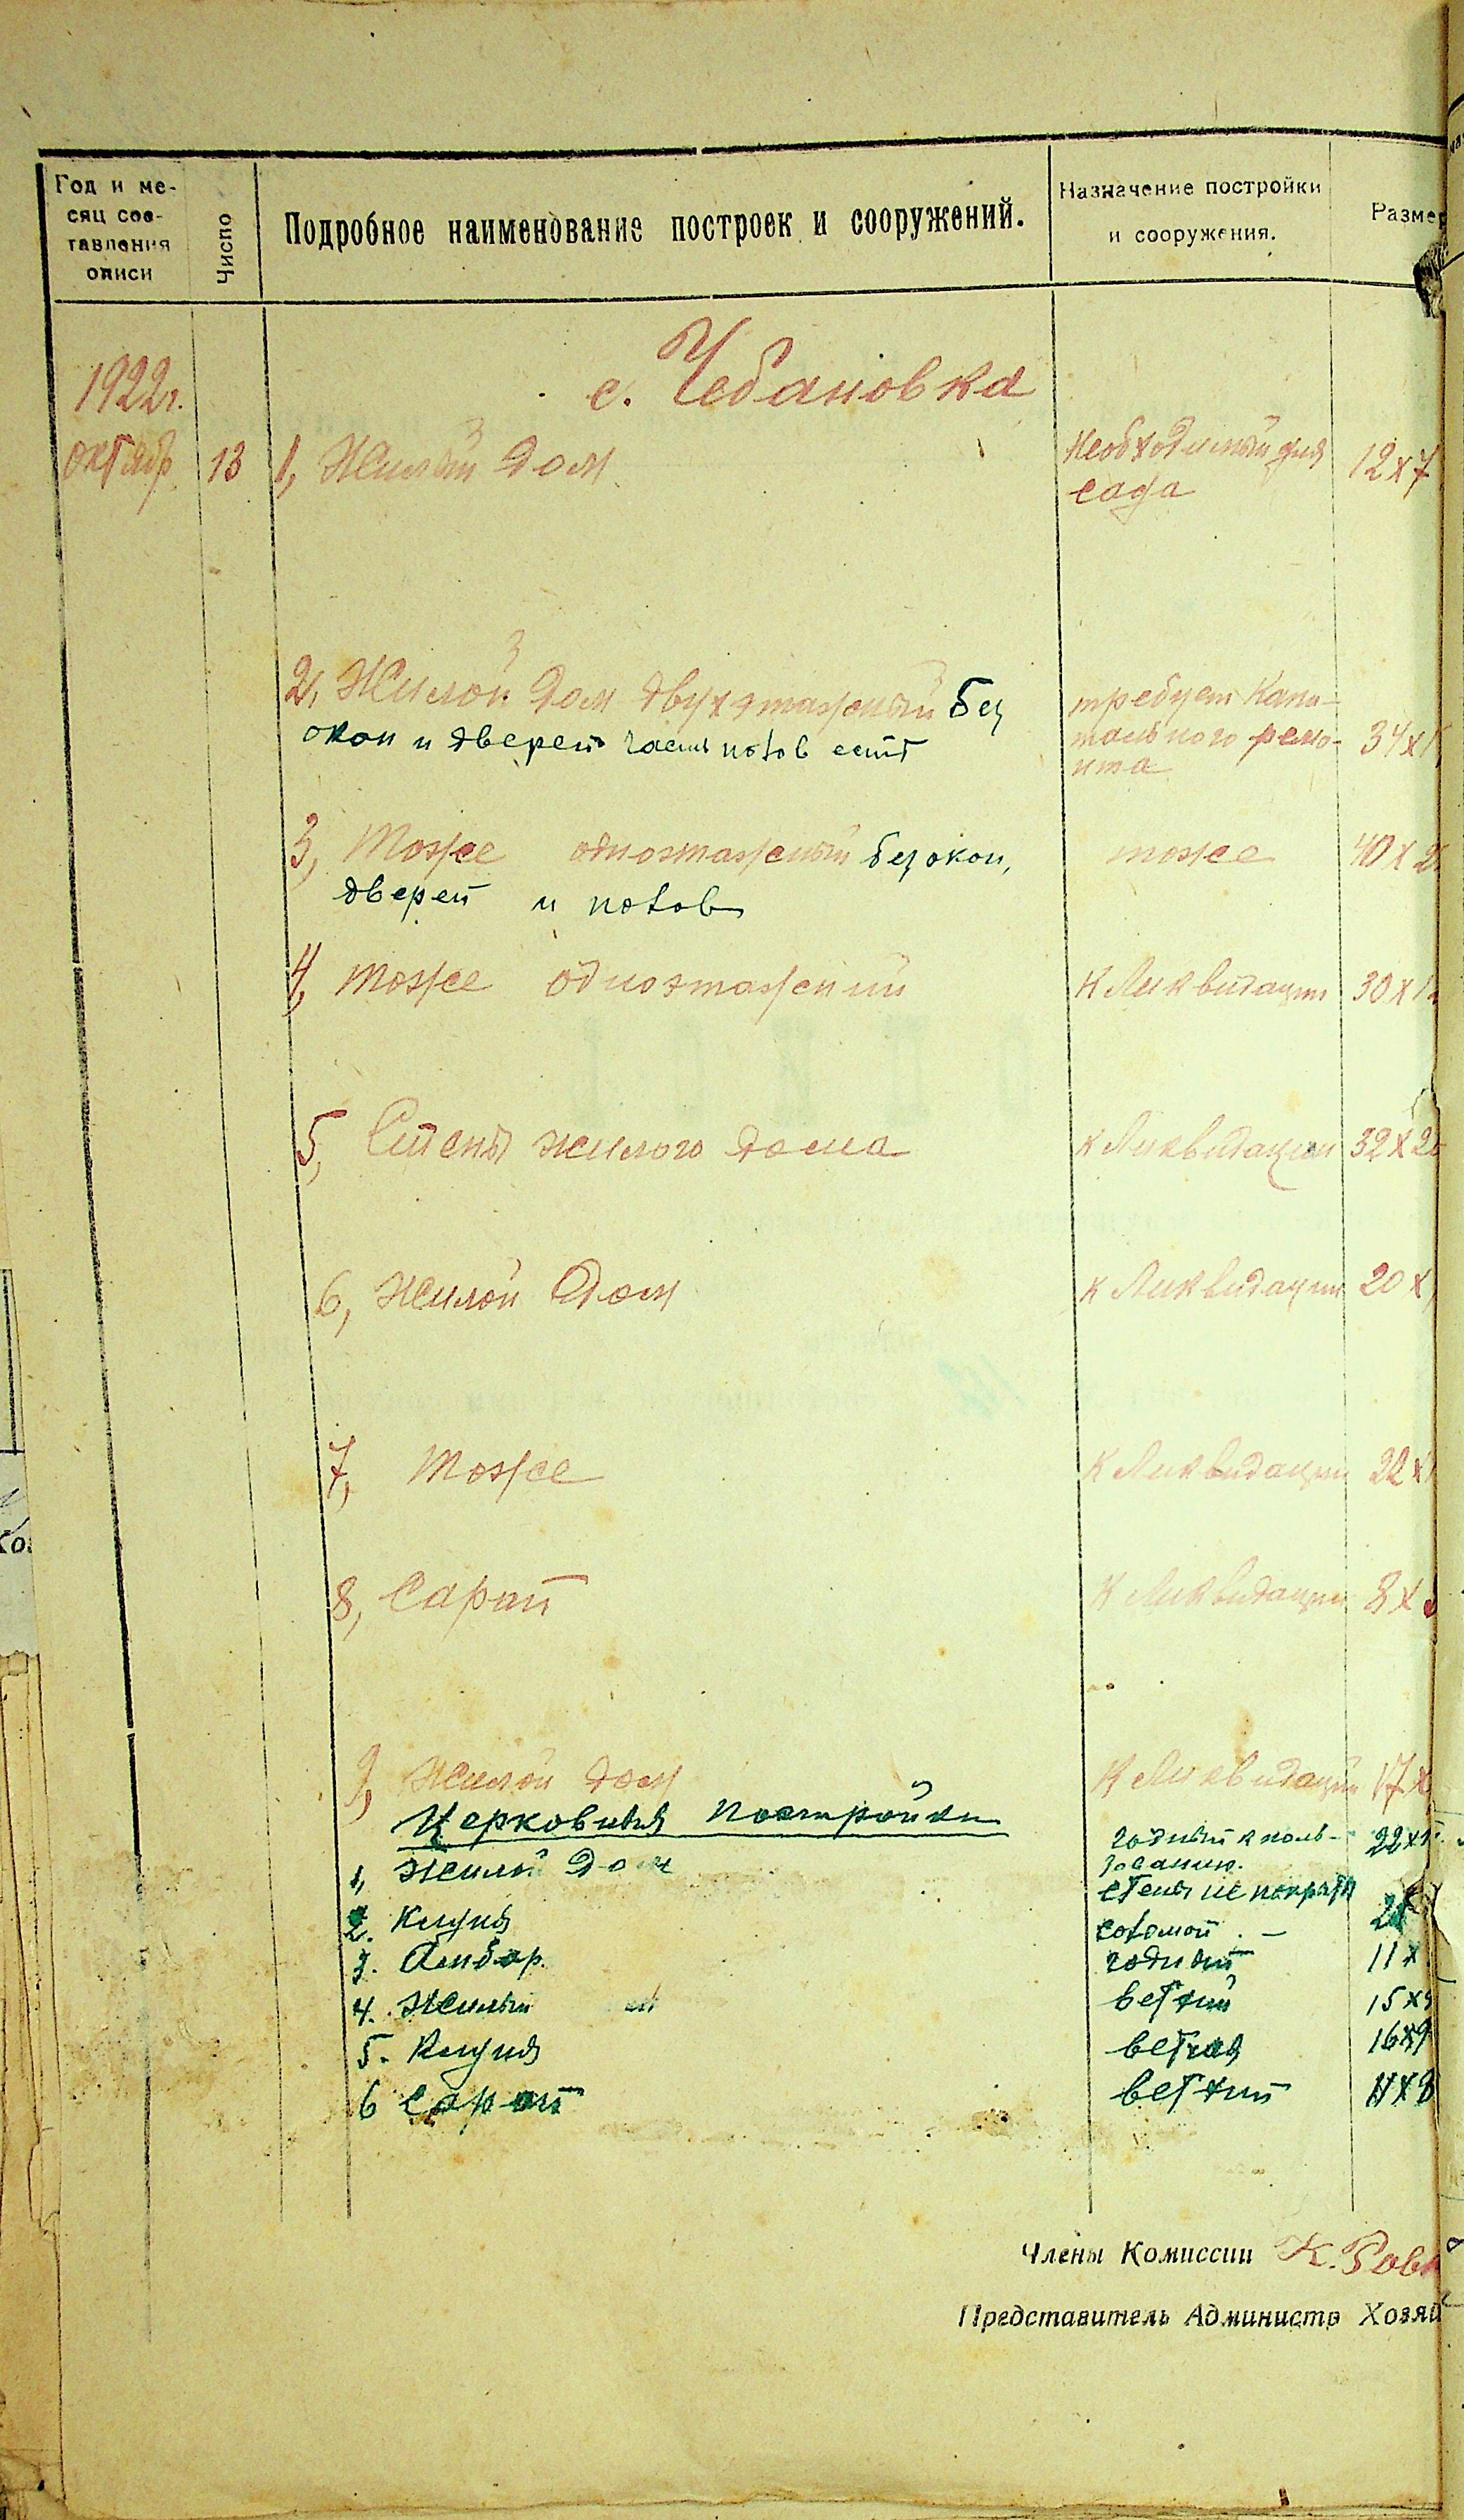 Год и ме-
сяц сос-
тавления
описи
Число
Подробное наименование построек и сооружений.
Назначение постройки
и сооружения.
Размер
1922г.
с. Чебановка
октябр 13 1, Жилый дом
Необходимый для
сада
12х7
2, Жилой дом двухэтажный без
окон и дверей часть полов есть
требует капи-
тального ремо-
нта
34х1
3, Тоже одноэтажный без окон,
дверей и полов
тоже
40х2
4, тоже одноэтажний
к Ликвидации 30х1
5, Стены жилого дома
к Ликвидации 32х2
6, Жилой Дом
к Ликвидации 20х
7, Тоже
к Ликвидации 22х
8, Сарай
к Ликвидации 8х
9, Жилой дом
к Ликвидации 17х
Церковныя постройки
1, Жилой дом
годный к поль-
зованию.
22х1
2. Клуня
стены не покрыта
соломой. -
3. Амбар.
годный
11х
4. Жилый
ветхий
15х
5. Клуня
ветхая
16х9
6 Сарай
ветхий
11х8
Члены Комиссии К.
Представитель Администр Хозяй